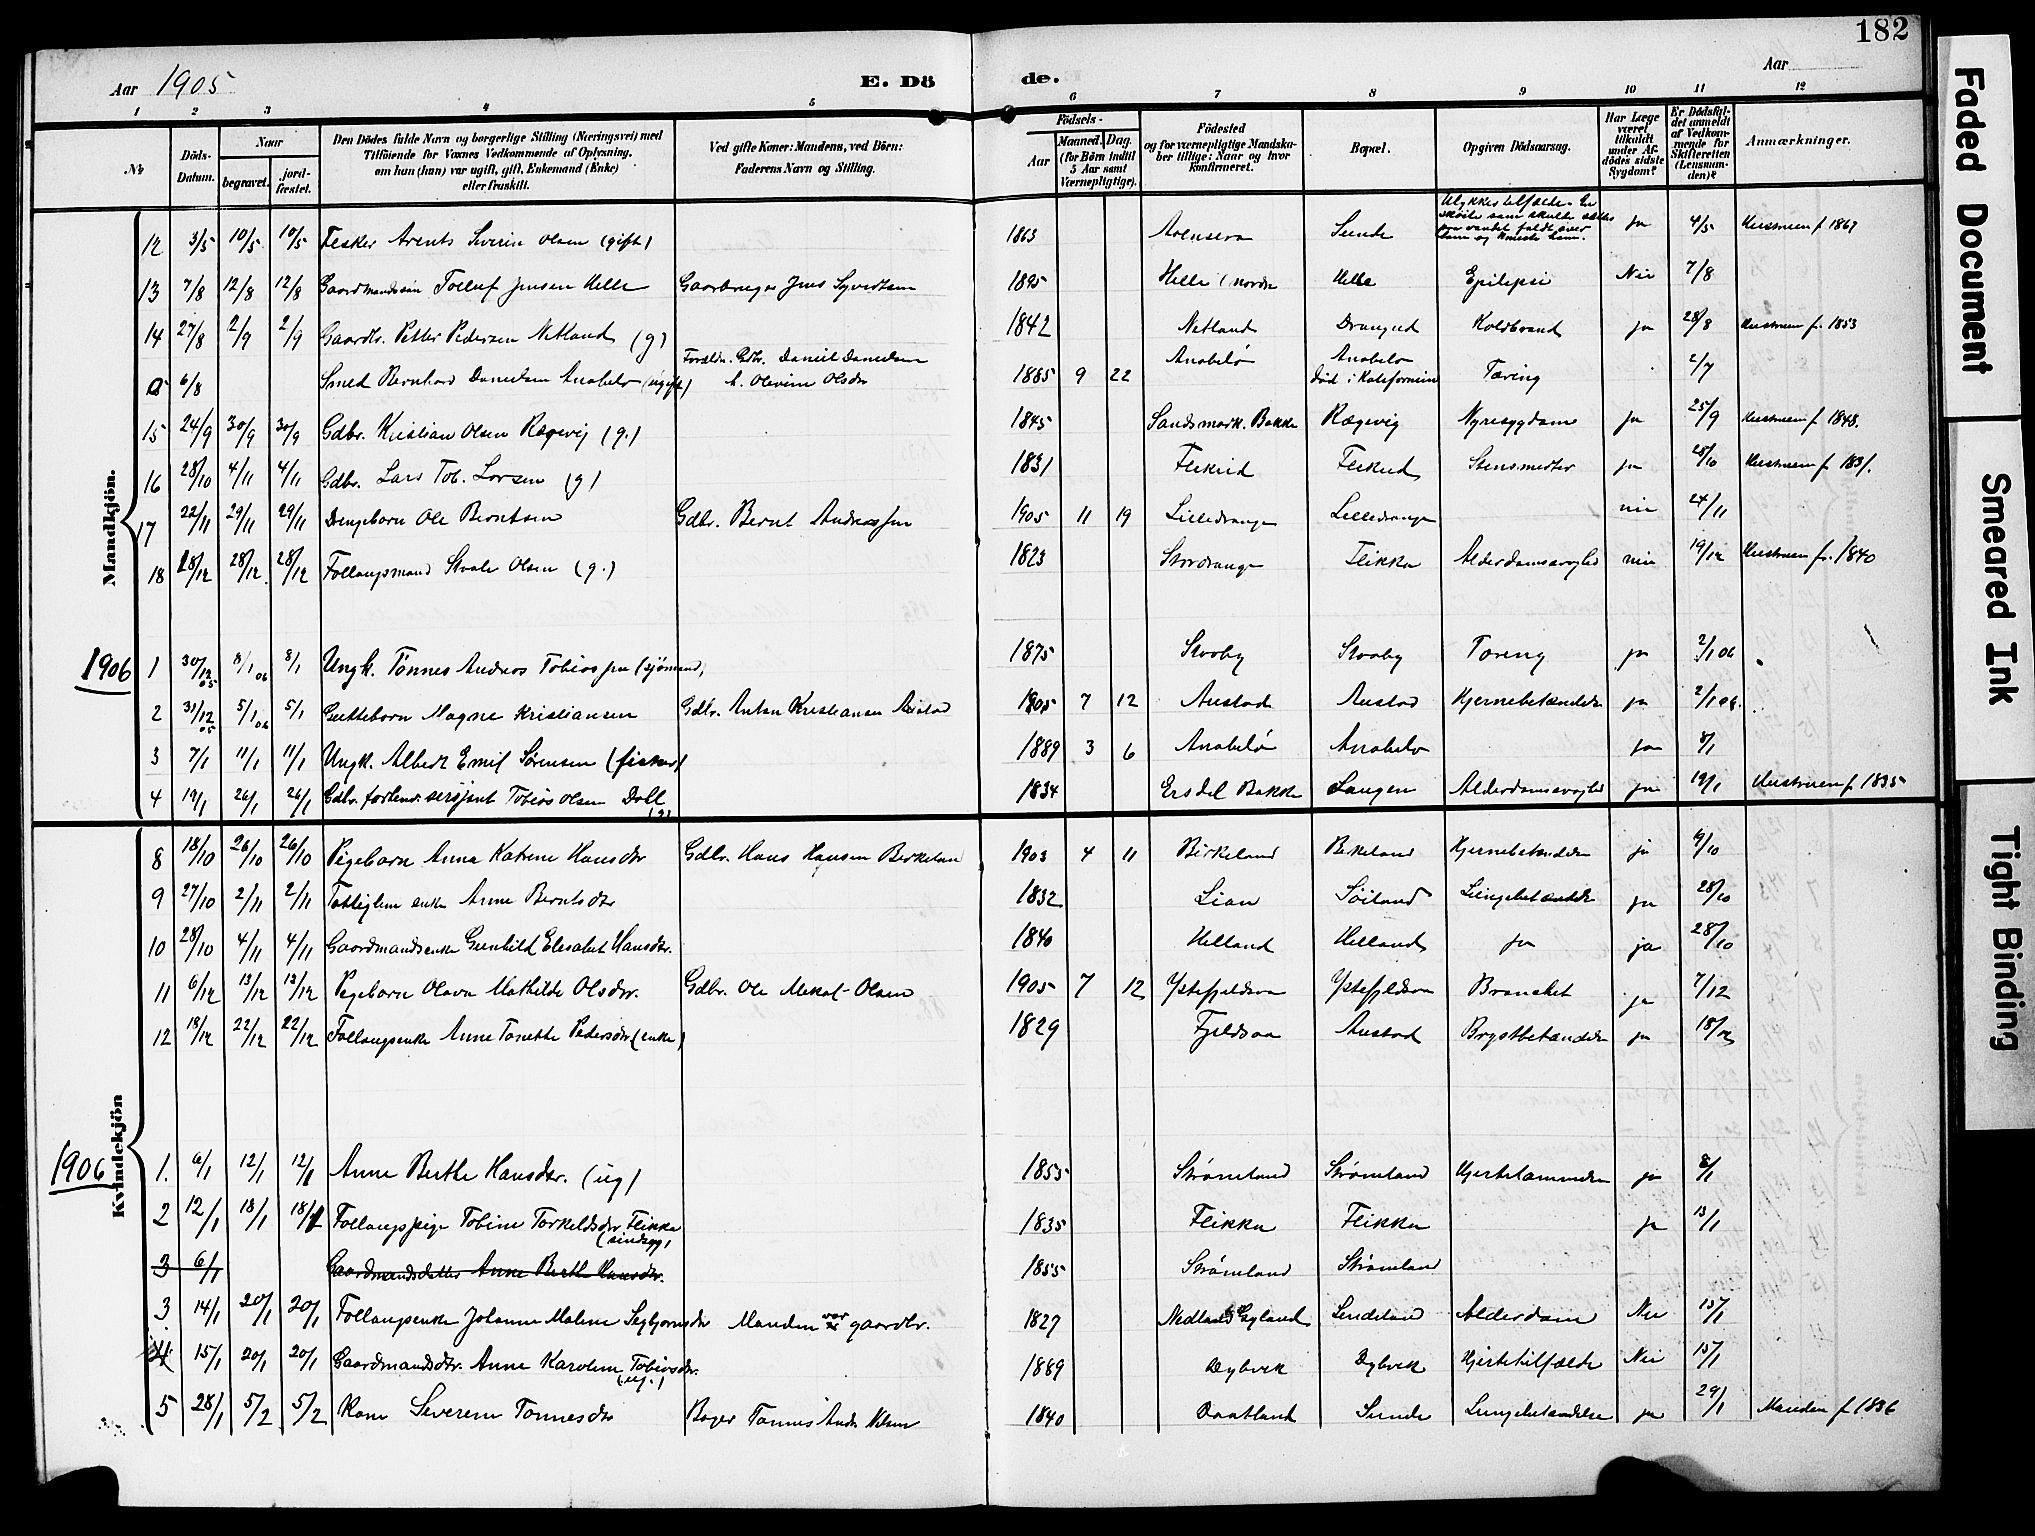 182
Aar 1905 E. Dö de. Aar
1 2 3 4 5 6 7 8 9 10 11 12
№ Döds-Datum. Naar begravet. jordfæstet. Den Dödes fulde Navn og borgerlige Stilling (Næringsvei) med Tilföiende for Voxnes Vedkommende af Oplysning, om han (hun) var ugift, gift, Enkemand (Enke) eller fraskilt. Ved gifte Koner: Mandens, ved Börn: Faderens Navn og Stilling. Födsels- Aar Maaned. Dag. (for Börn indtil 5 Aar samt Værnepligtige). Födested og for værnepligtige Mandskaber tillige: Naar og hvor konfirmeret. Bopæl. Opgiven Dödsaarsag. Har Læge været tilkaldt under Afdödes sidste Sygdom? Er Dödsfaldet anmeldt af Vedkommende for Skifteretten (Lensmanden)? Anmærkninger.
Mandkjön.
12 3/5 10/5 10/5 Fisker Arents Severin Olsen (gift) 1863 Sunde Ulykkestilfælde. ja 4/5 Hustruen f 1867
13 7/8 12/8 12/8 Gaardmandssøn Tollef Jensen Helle Gaardbruger Jens Syvertsen 1895 Helle (nordre Helle Epilepsi Nei 7/8
14 27/8 2/9 2/9 Gaardbr. Petter Pedersen Netland (g) 1842 Netland Drangeid Koldbrand ja 28/8 Hustruen f. 1853
6/8 Smed Bernhard Danielsen Anabelø (ugift) Foræld. Gdbr. Daniel Danielsen h. Olevine Olsdr 1885 9 22 Anabelø Anabelø død i Kalifornien Tæring 2/7
15 24/9 30/9 30/9 Gdbr. Kristian Olsen Rægevig (g.) 1845 Sandsmark. Bakke Rægevig Nyresygdom ja 25/9 Hustruen f 1848.
16 28/10 4/11 4/11 Gdbr. Lars Tob. Larsen (g) 1831 Flikeid Flikeid Stensmerter ja 28/10 Hustruen f 1831.
17 22/11 29/11 29/11 Drengebarn Ole Berntsen Gdbr. Bernt Andreassen 1905 11 19 Lilledrange Lilledrange nei 24/11
18 18/12 28/12 28/12 Follaugsmand Staale Olsen (g.) 1823 Stordrange Flikka Alderdomssvaghed nei 19/12 Hustruen f. 1840
1906
1 30/12 05 8/1 06 8/1 Ungk. Tønnes Andreas Tobiassen (sjømand) 1875 Skoby Skoby Tæring ja 2/1 06
2 31/12 05 5/1 06 5/1 Gutteborn Magne Kristiansen Gdbr. Anton Kristiansen Austad 1905 7 12 Austad Austad Hjernebetændelse ja 2/1 06.
3 7/1 11/1 11/1 Ungk. Albert Emil Sørensen (fisker) 1889 3 6 Anabelø Anabelø ja 8/1
4 19/1 26/1 26/1 Gdbr. forhenv. sersjant Tobias Olsen Dall (g) 1834 Ersdal Bakke Laugen Alderdomssvaghed ja 19/1 Hustruen f 1835
Kvindekjön
8 18/10 26/10 26/10 Pigebarn Anna Katrine Hansdr Gdbr. Hans Hansen Birkeland 1903 4 11 Birkeland Birkeland Hjernebetændelse ja 19/10
9 27/10 2/11 2/11 Fattiglem enke Anne Berntsdr 1832 Lian Søiland Lungebetændelse ja 28/10
10 28/10 4/11 4/11 Gaardmandsenke Gunhild Elisabet Hansdtr. 1840 Helland Helland ja ja 28/10
11 6/12 13/12 13/12 Pigebarn Olava Mathilde Olsdtr. Gdbr. Ole Mekal Olsen 1905 7 12 Ystefjeldsaa Ystefjeldsaa Bronchit ja 7/12
12 18/12 22/12 22/12 Follaugsenke Anne Tonette Pedersdtr (enke) 1829 Fjeldsaa Austad Brystbetændelse ja 18/12
1906
1. 6/1 12/1 12/1 Anne Berthe Hansdtr. (ug) 1855 Strømland Strømland Hjertelammelse ja 8/1
2 12/1 18/1 18/1 Follaugspige Tobine Torkeldsdtr Flikka (sindssyg) 1835 Flikka Flikka ja 13/1
3 6/1 Gaardmandsdatter Anne Berthe Hansdtr. 1855 Strømland Strømland
3 14/1 20/1 20/1 Follaugsenke Johanne Malene Segbjornsdr Manden var gaardbr. 1827 Nedland Gyland Sindeland Alderdom Nei 15/1
4 15/1 20/1 20/1 Gaardmandsdtr. Anne Karoline Tobiasdtr. (ug.) 1889 Dybvik Dybvik Hjertetilfælde Nei 15/1
5 28/1 5/2 5/2 Kone Severine Tonnesdtr Bager Tønnes Andr. 1840 Sunde Lungebetændelse ja 29/1 Manden f 1836
Faded Document
Smeared Ink
Tight Binding